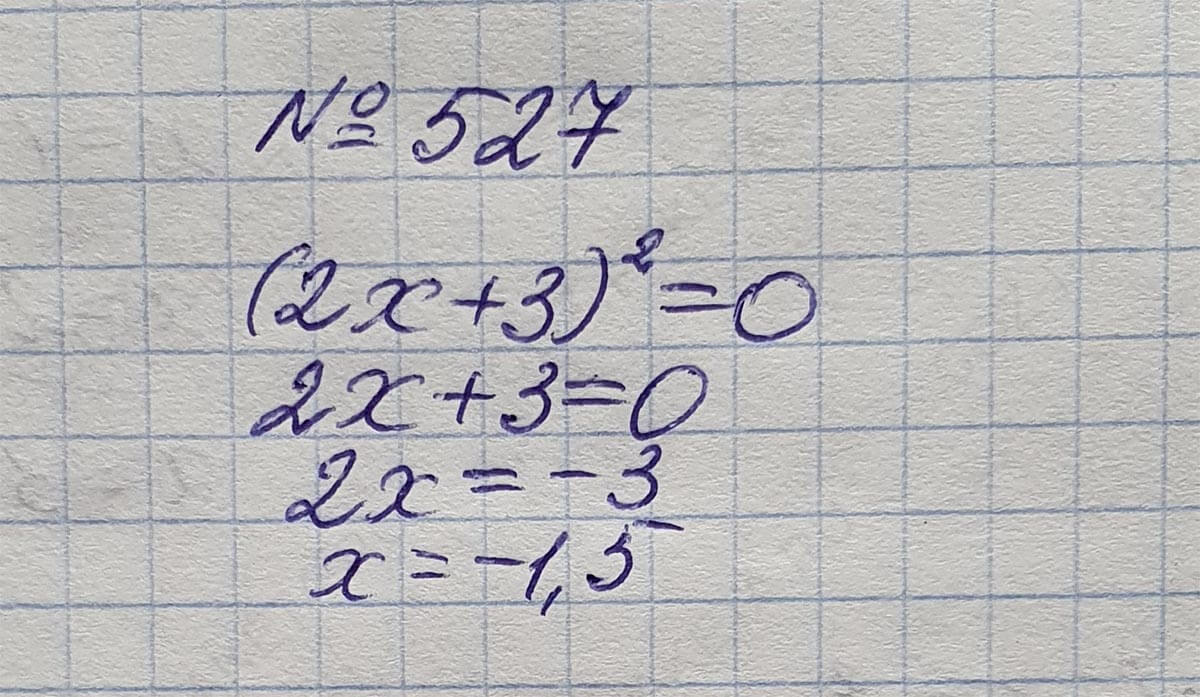 № 527
(2x+3)²=0
2x+3=0
2x=-3
x=-1,5